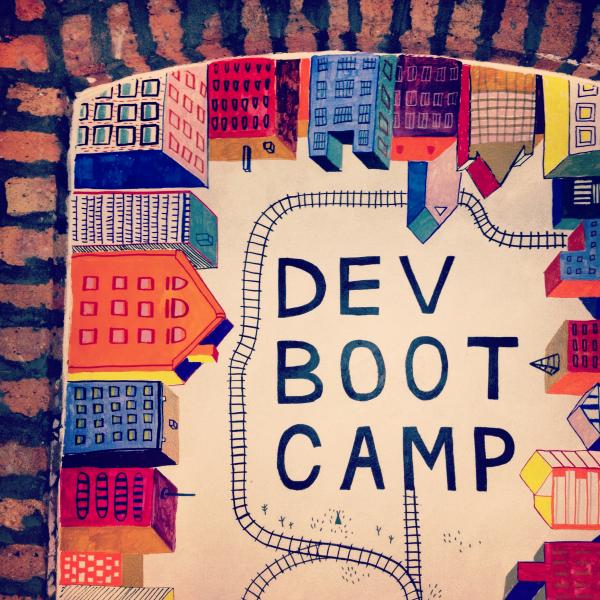 DEV
BOOT
CAMP